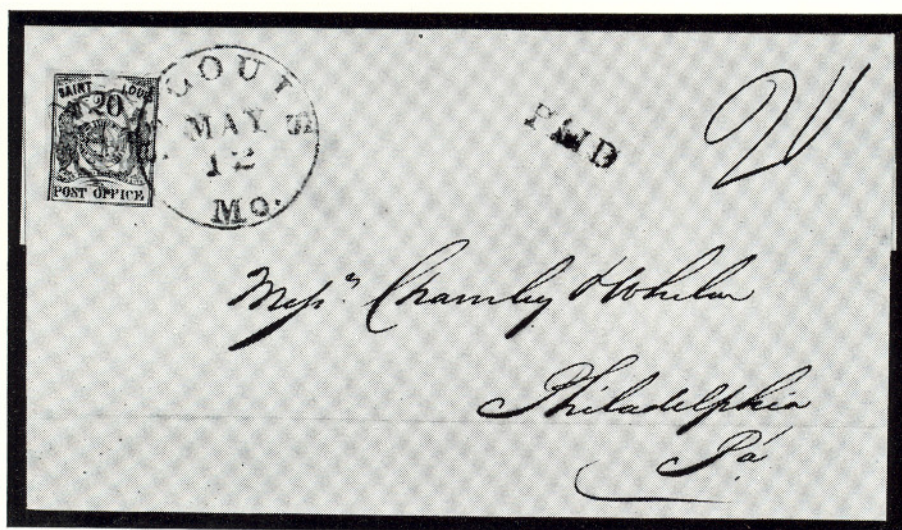 SAINT LOUIS
20
POST OFFICE
ST. LOUIS
MAY
12
Mo.
PAID
20
Messrs Chamley & Whelen
Philadelphia
Pa